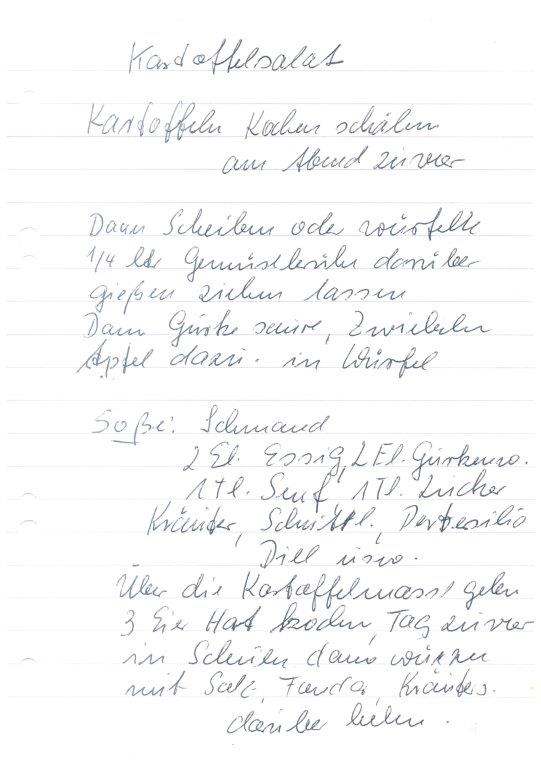 Kartoffelsalat
Kartoffeln Kochen schälen
am Abend zuvor
Dann Scheiben oder würfelk
1/4 ltr Gemüsebrühe darüber
gießen ziehen lassen
Dann Gurke saure, Zwiebeln
Apfel dazu. in Würfel
Soße: Schmand
2 El. Essig, 2 El. Gurkenw.
1 Tl. Senf, 1 Tl. Zucker
Kräuter, Schnittl., Petersilie
Dill usw.
Über die Kartoffelmasse geben
3 Eier Hart kochen, Tag zuvor
in Scheiben dann würzen
mit Salz, Fondor, Kräuters.
darüber